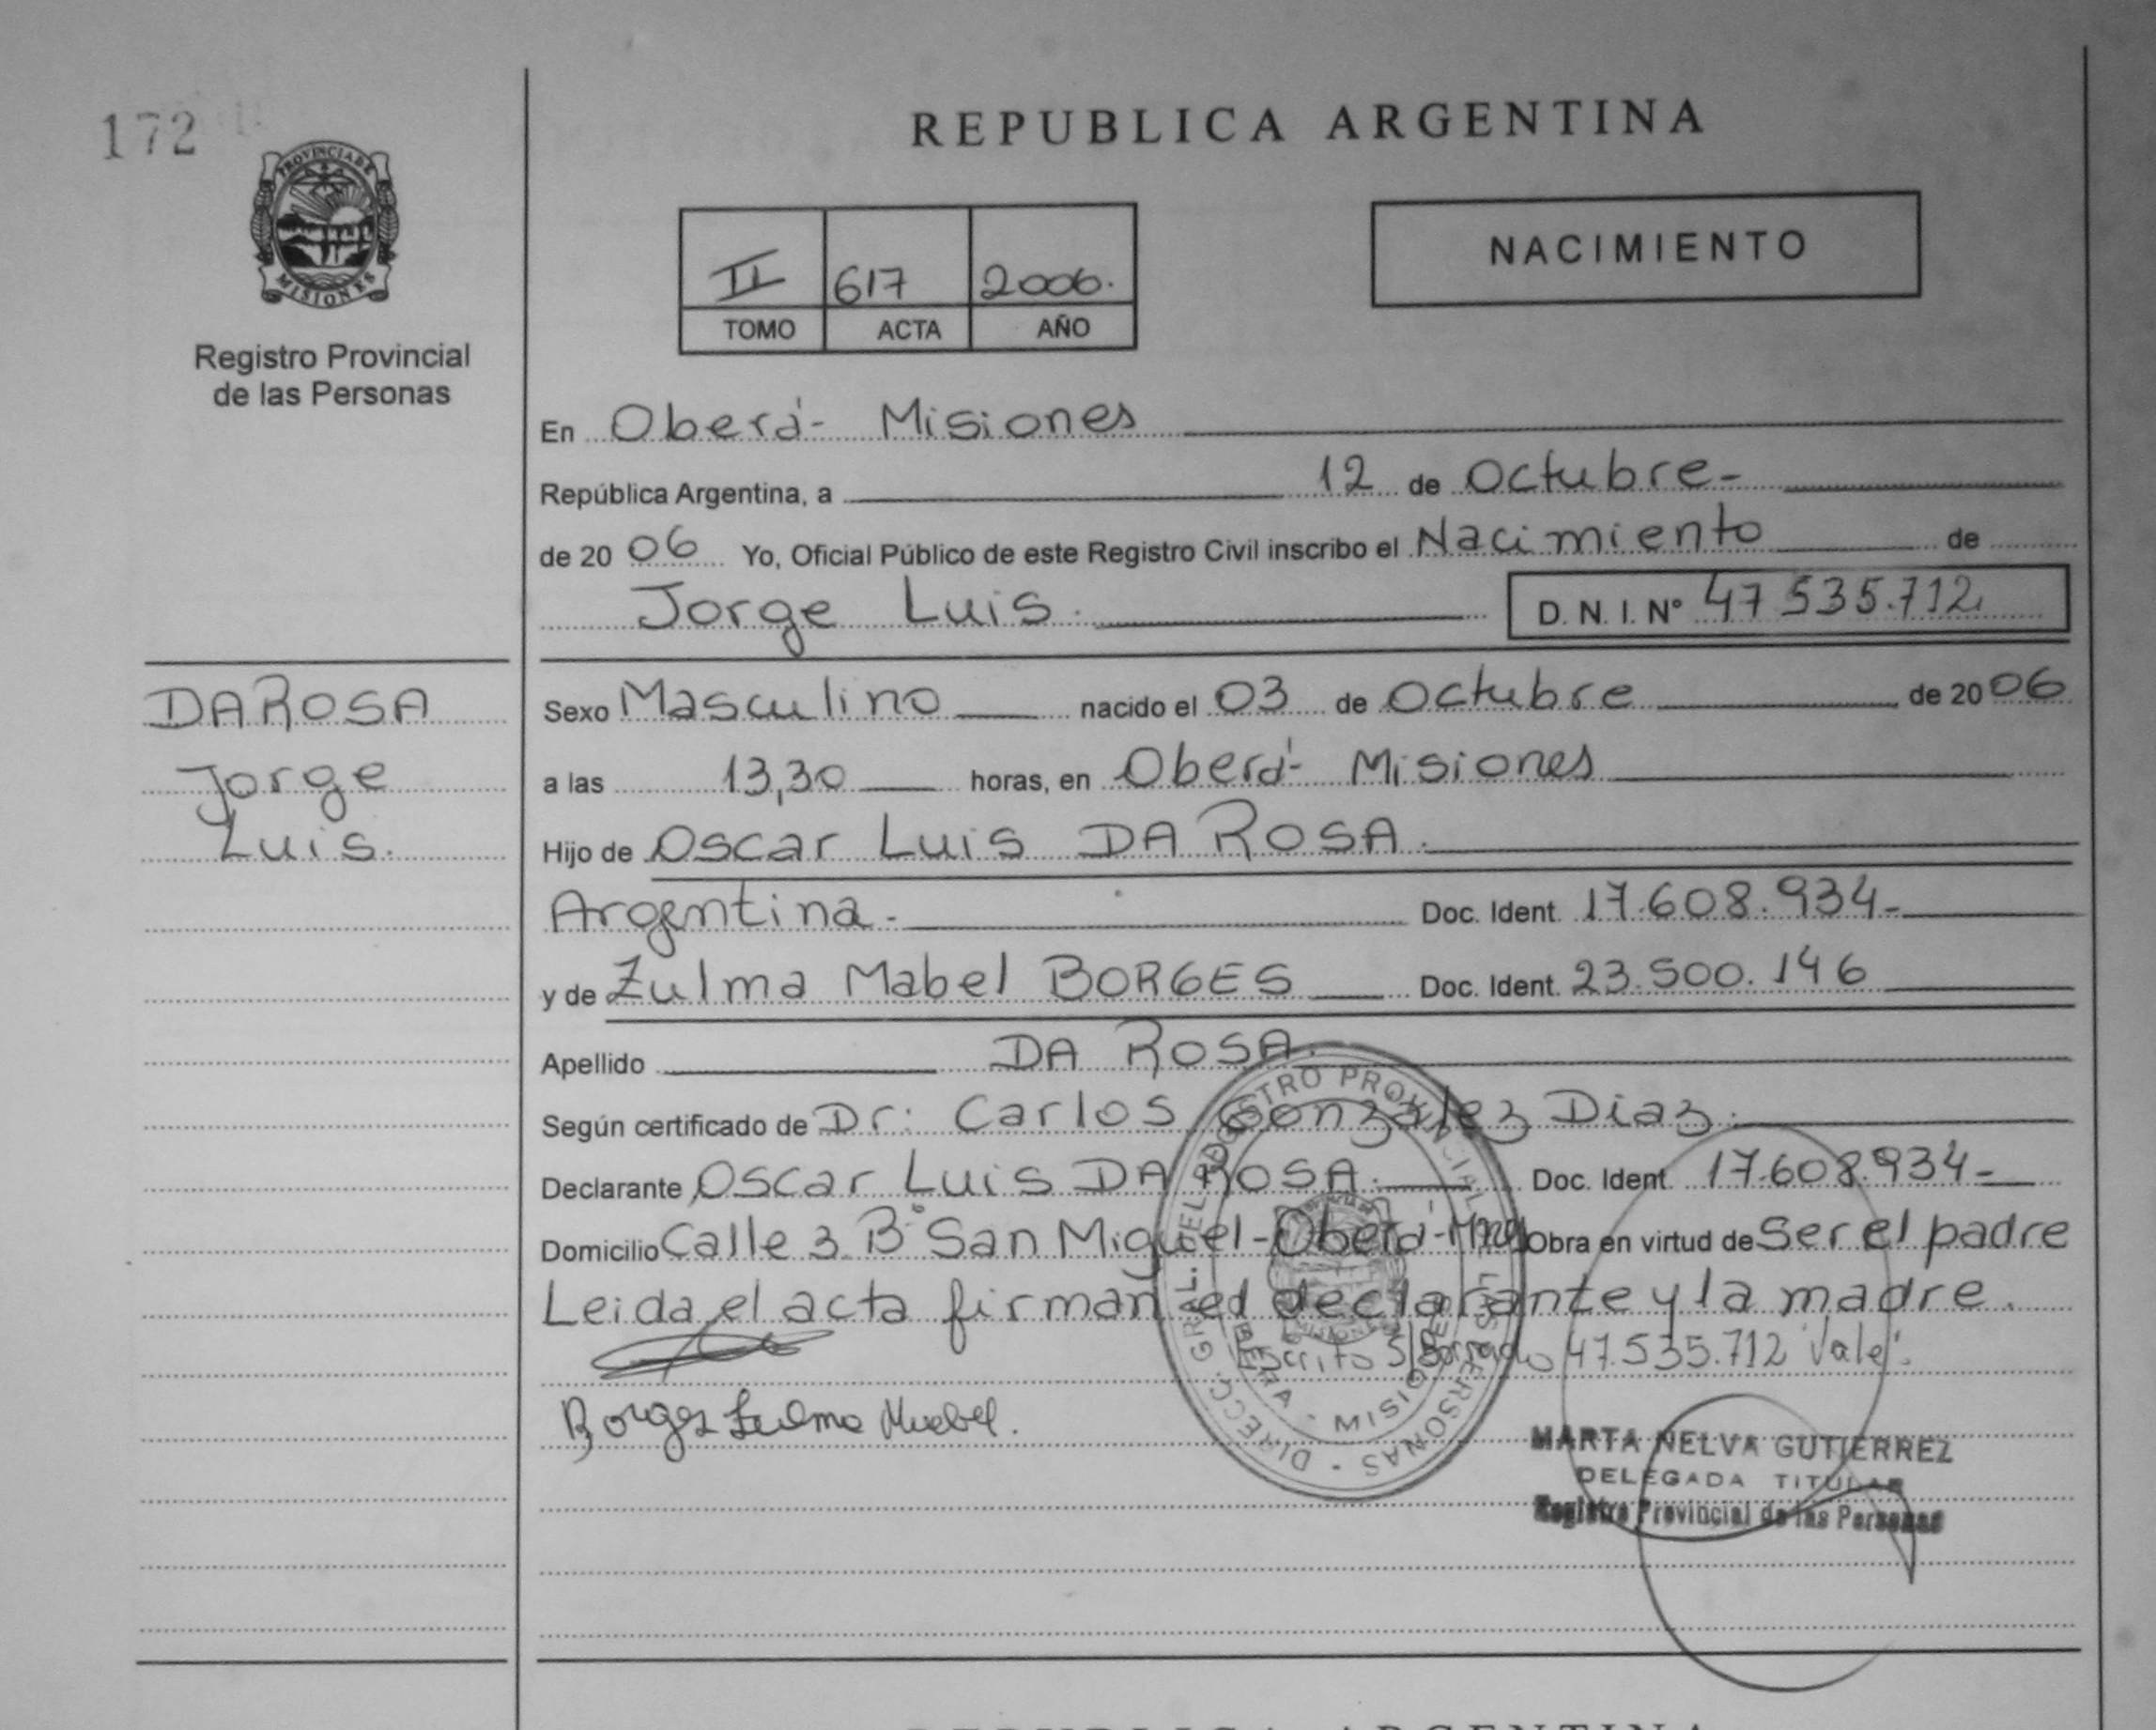 172
PROVINCIA DE
MISIONES
Registro Provincial
de las Personas
REPUBLICA ARGENTINA
NACIMIENTO
II 617 2006.
TOMO ACTA AÑO
En Oberá- Misiones
República Argentina, a 12 de Octubre-
de 20 06 Yo, Oficial Público de este Registro Civil inscribo el Nacimiento de
Jorge Luis. D. N. I. N° 47 535.712
DA ROSA
Jorge
Luis.
Sexo Masculino nacido el 03 de Octubre de 20 06
a las 13,30 horas, en Oberá- Misiones
Hijo de Oscar Luis DA ROSA.
Argentina.- Doc. Ident. 17.608.934-
y de Zulma Mabel BORGES Doc. Ident. 23.500.146
Apellido DA ROSA.
Según certificado de Dr: Carlos Gonzalez Diaz.
Declarante Oscar Luis DA ROSA. Doc. Ident. 17.608.934-
Domicilio Calle 3 B° San Miguel-Oberá- Obra en virtud de Ser el padre
Leida el acta firman el declarante y la madre.
Escrito S/Borrado 47.535.712 Vale.
Borges Zulma Mabel.
DIRECC. GRAL. DEL REGISTRO PROVINCIAL DE LAS PERSONAS
OBERA - MISIONES
MARTA NELVA GUTIERREZ
DELEGADA TITULAR
Registro Provincial de las Personas
REPUBLICA ARGENTINA